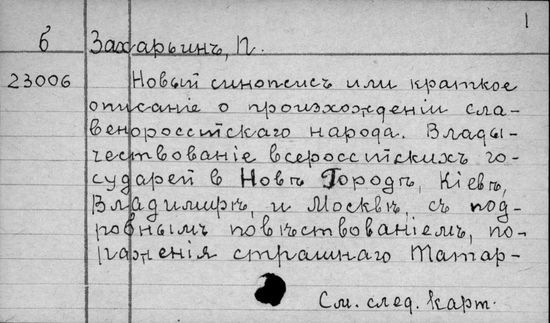 1
б Захарьинъ, П.
23006 Новый синопсисъ или краткое
описаніе о произхожденіи сла-
веноросстскаго народа. Влады-
чествованіе всеросстскихъ го-
сударей в Новѣ Городѣ, Кіевѣ,
Владимирѣ, и Москвѣ, съ под-
робнымъ повѣствованіемъ, по-
раженія страшнаго Татар-
См. след. карт.